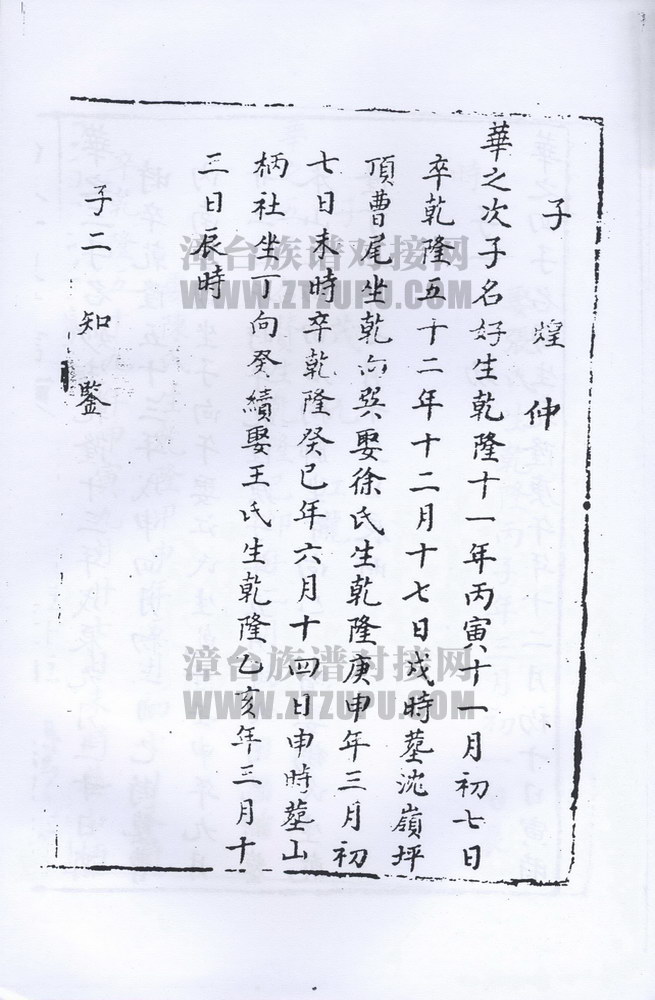 子 煌 仲
華之次子名好生乾隆十一年丙寅十一月初七日
卒乾隆五十二年十二月十七日戌時墓沈嶺坪
頂曹尾坐乾向巽娶徐氏生乾隆庚申年三月初
七日未時卒乾隆癸巳年六月十四日申時墓山
柄社坐丁向癸續娶王氏生乾隆乙亥年三月十
三日辰時
子二 知 鑒
漳台族谱对接网
WWW.ZTZUPU.COM
漳台族谱对接网
WWW.ZTZUPU.COM